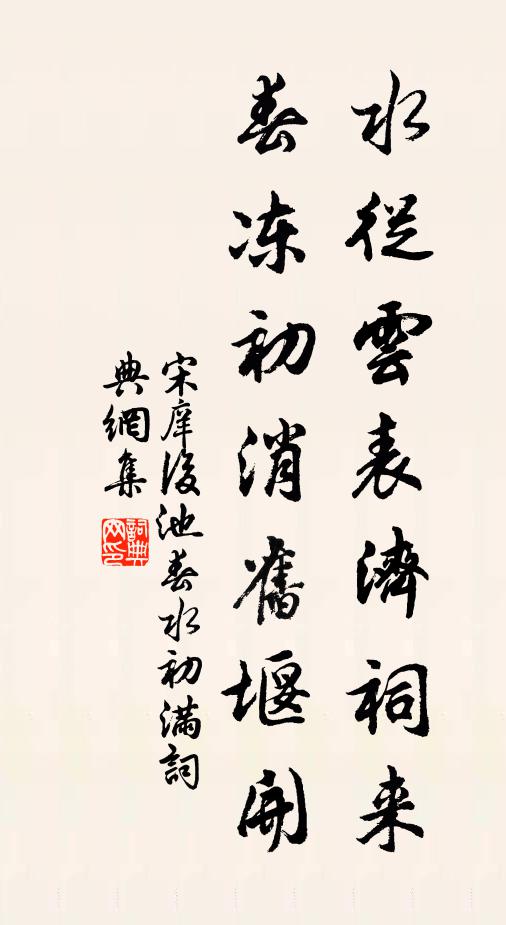 水從雲表濟祠来
春冻初消舊堰開
宋庠後池春水初滿詞
典網集
詞典網印